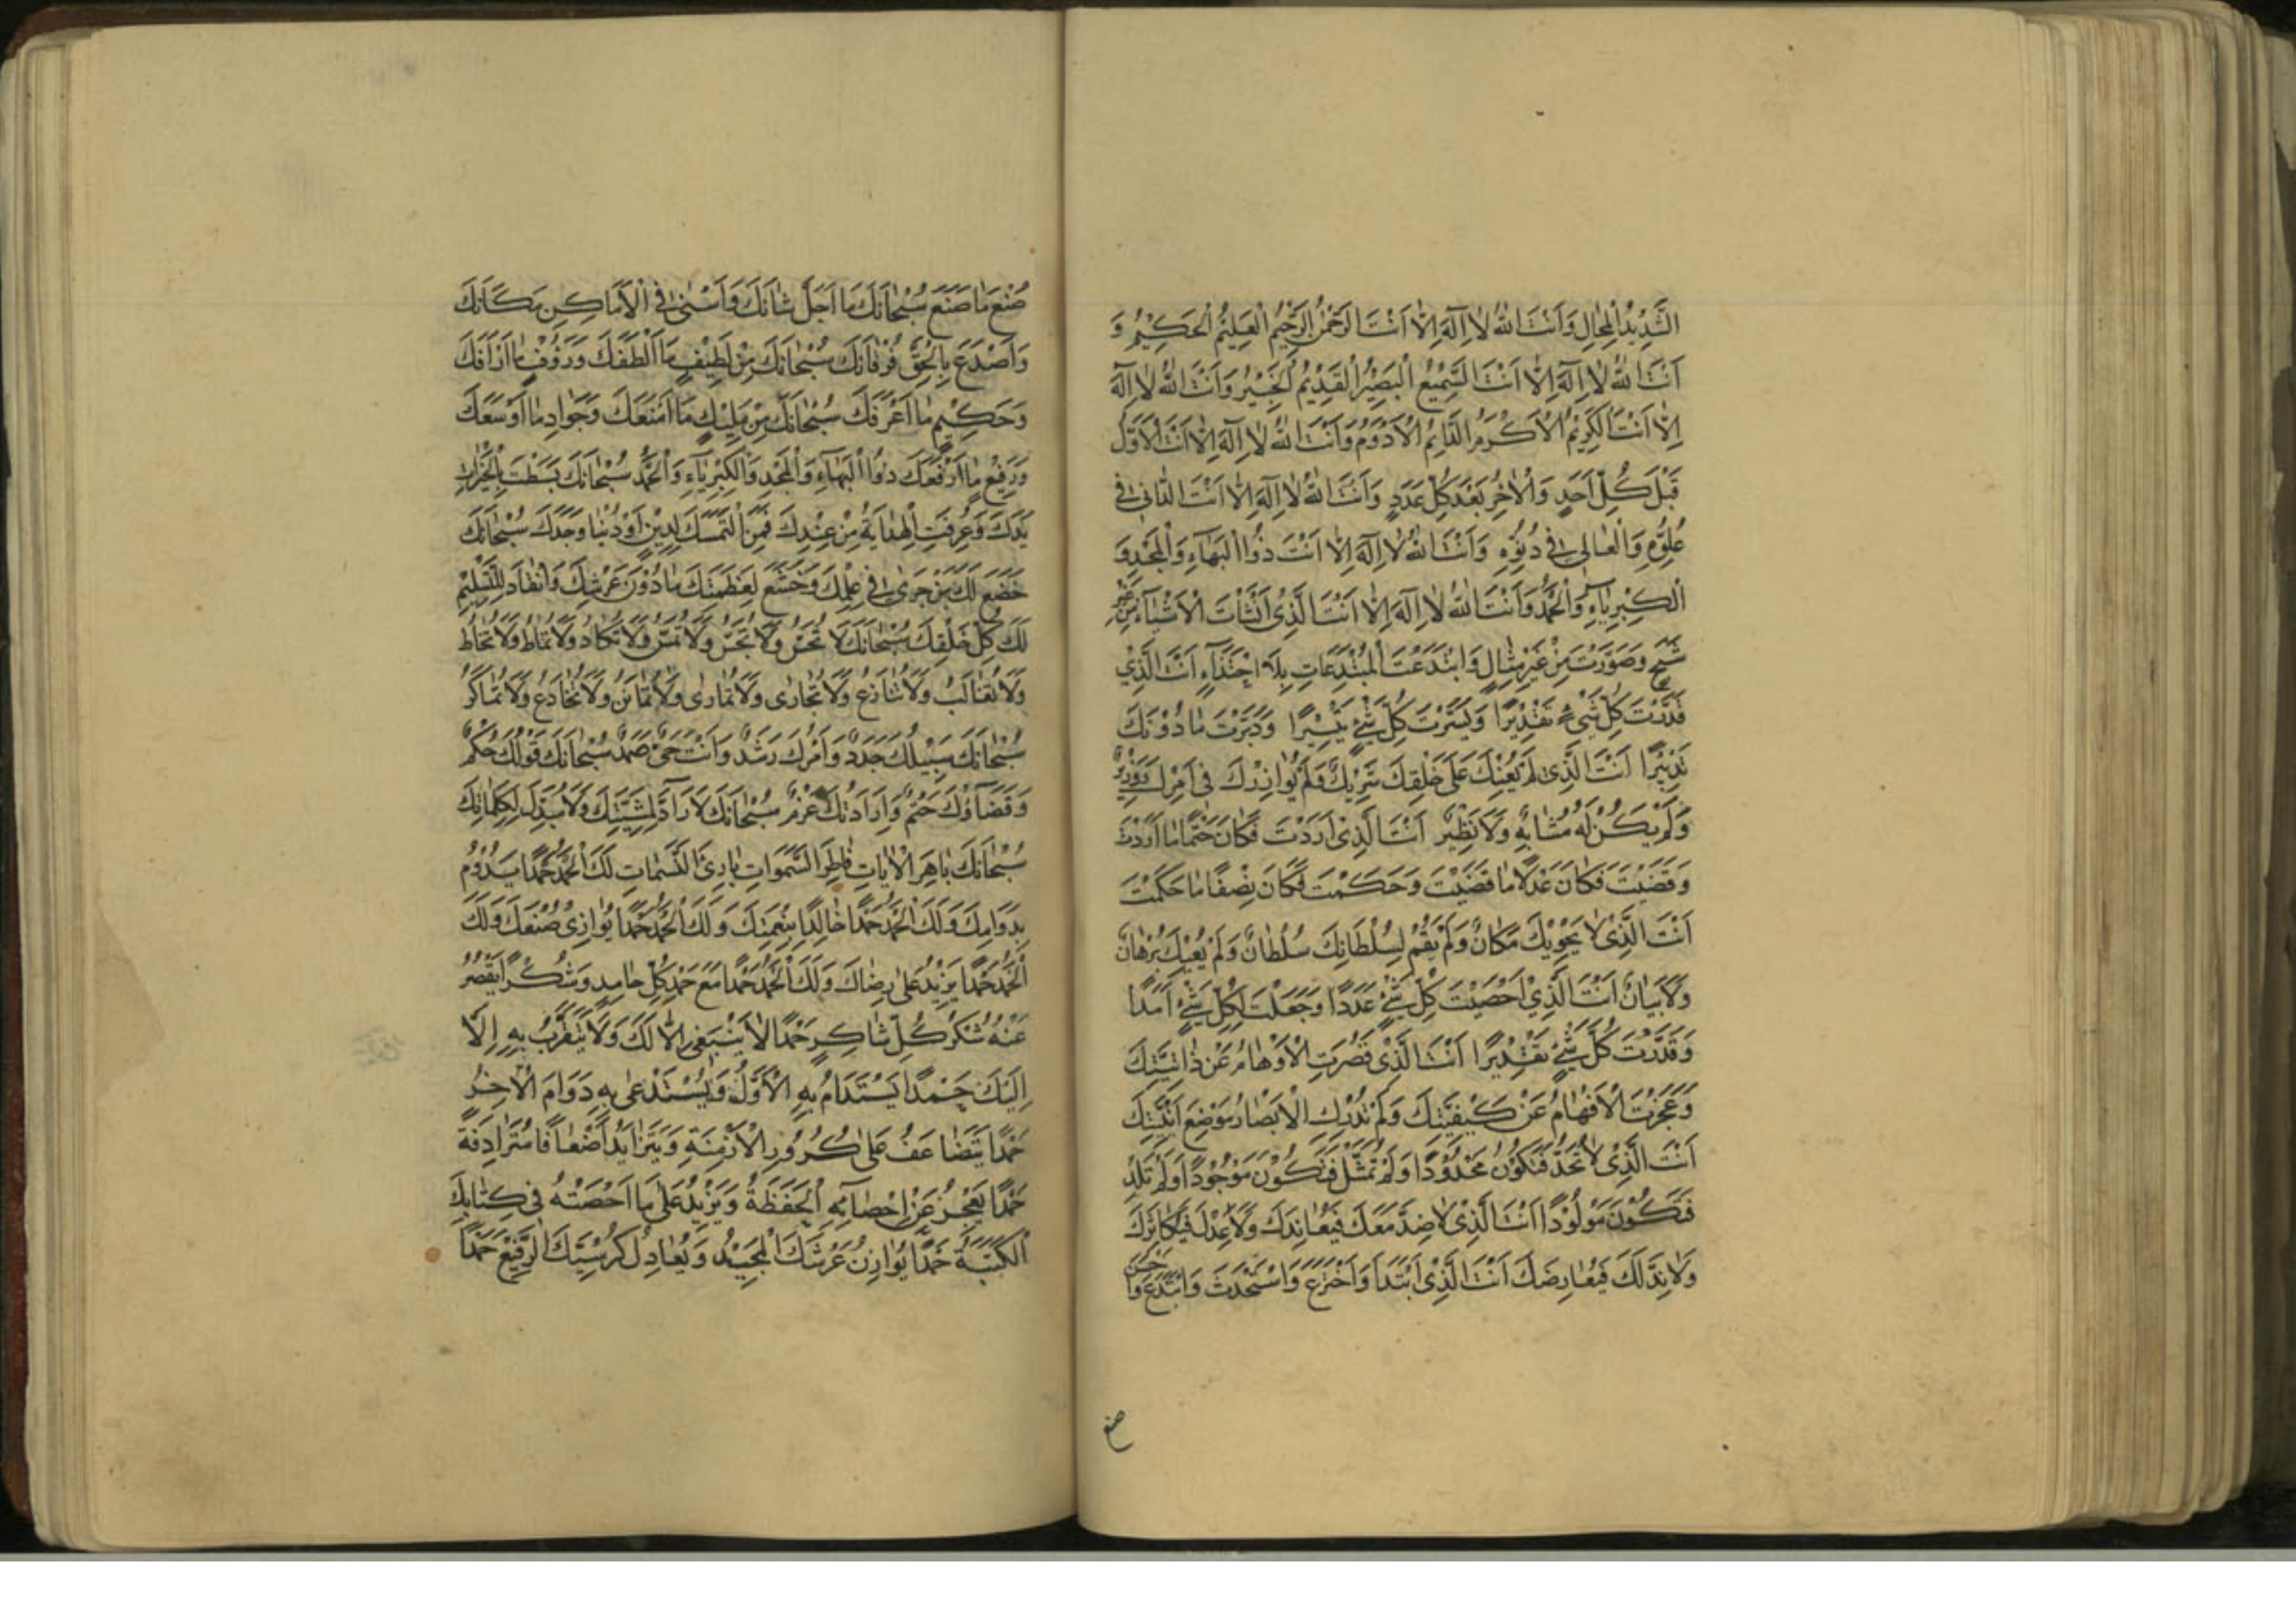 الشَّدِيدُ الْمِحَالِ وَاَنْتَ اللهُ لَا اِلَهَ اِلَّا اَنْتَ الرَّحْمٰنُ الرَّحِيْمُ الْعَلِيْمُ الْحَكِيْمُ وَ
اَنْتَ اللهُ لَا اِلَهَ اِلَّا اَنْتَ السَّمِيْعُ الْبَصِيْرُ الْقَدِيْمُ الْخَبِيْرُ وَاَنْتَ اللهُ لَا اِلَهَ
اِلَّا اَنْتَ الْكَرِيْمُ الْاَكْرَمُ الدَّائِمُ الْاَدْوَمُ وَاَنْتَ اللهُ لَا اِلَهَ اِلَّا اَنْتَ الْاَوَّلُ
قَبْلَ كُلِّ اَحَدٍ وَالْاٰخِرُ بَعْدَ كُلِّ عَدَدٍ وَاَنْتَ اللهُ لَا اِلَهَ اِلَّا اَنْتَ الدَّانِي فِي
عُلُوِّهِ وَالْعَالِي فِي دُنُوِّهِ وَاَنْتَ اللهُ لَا اِلَهَ اِلَّا اَنْتَ ذُوا الْبَهَاءِ وَالْمَجْدِ وَ
الْكِبْرِيَاءِ وَالْحَمْدِ وَاَنْتَ اللهُ لَا اِلَهَ اِلَّا اَنْتَ الَّذِيْ اَنْشَاْتَ الْاَشْيَاءَ مِنْ غَيْرِ
شَبَحٍ وَصَوَّرْتَ مِنْ غَيْرِ مِثَالٍ وَابْتَدَعْتَ الْمُبْتَدِعَاتِ بِلَا احْتِذَاءٍ اَنْتَ الَّذِيْ
قَدَّرْتَ كُلَّ شَيْءٍ تَقْدِيْرًا وَيَسَّرْتَ كُلَّ شَيْءٍ تَيْسِيْرًا وَدَبَّرْتَ مَا دُوْنَكَ
تَدْبِيْرًا اَنْتَ الَّذِي لَمْ يُعِنْكَ عَلَى خَلْقِكَ شَرِيْكٌ وَلَمْ يُوَازِرْكَ فِي اَمْرِكَ وَزِيْرٌ
وَلَمْ يَكُنْ لَهُ مُشَابِهٌ وَلَا نَظِيْرٌ اَنْتَ الَّذِيْ اَرَدْتَ فَكَانَ حَتْمًا مَا اَرَدْتَ
وَقَضَيْتَ فَكَانَ عَدْلًا مَا قَضَيْتَ وَحَكَمْتَ فَكَانَ نِصْفًا مَا حَكَمْتَ
اَنْتَ الَّذِيْ لَا يَحْوِيْكَ مَكَانٌ وَلَمْ يَقُمْ لِسُلْطَانِكَ سُلْطَانٌ وَلَمْ يُعْيِكَ بُرْهَانٌ
وَلَا بَيَانٌ اَنْتَ الَّذِيْ اَحْصَيْتَ كُلَّ شَيْءٍ عَدَدًا وَجَعَلْتَ لِكُلِّ شَيْءٍ اَمَدًا
وَقَدَّرْتَ كُلَّ شَيْءٍ تَقْدِيْرًا اَنْتَ الَّذِيْ قَصُرَتِ الْاَوْهَامُ عَنْ ذَاتِيَّتِكَ
وَعَجَزَتِ الْاَفْهَامُ عَنْ كَيْفِيَّتِكَ وَلَمْ تُدْرِكِ الْاَبْصَارُ مَوْضِعَ اَيْنِيَّتِكَ
اَنْتَ الَّذِيْ لَا تُحَدُّ فَتَكُوْنَ مَحْدُوْدًا وَلَمْ تُمَثَّلْ فَتَكُوْنَ مَوْجُوْدًا وَلَمْ تَلِدْ
فَتَكُوْنَ مَوْلُوْدًا اَنْتَ الَّذِيْ لَا ضِدَّ مَعَكَ فَيُعَانِدَكَ وَلَا عِدْلَ فَيُكَاثِرَكَ
وَلَا نِدَّ لَكَ فَيُعَارِضَكَ اَنْتَ الَّذِيْ ابْتَدَاَ وَاخْتَرَعَ وَاسْتَحْدَثَ وَابْتَدَعَ وَاَحْسَنَ
صنع
صُنْعَ مَا صَنَعَ سُبْحَانَكَ مَا اَجَلَّ شَانَكَ وَاَسْنٰى فِي الْاَمَاكِنِ مَكَانَكَ
وَاَصْدَعَ بِالْحَقِّ فُرْقَانَكَ سُبْحَانَكَ مِنْ لَطِيْفٍ مَا اَلْطَفَكَ وَرَؤُفٍ مَا اَرْاَفَكَ
وَحَكِيْمٍ مَا اَعْرَفَكَ سُبْحَانَكَ مِنْ مَلِيْكٍ مَا اَمْنَعَكَ وَجَوَادٍ مَا اَوْسَعَكَ
وَرَفِيْعٍ مَا اَرْفَعَكَ ذُوا الْبَهَاءِ وَالْمَجْدِ وَالْكِبْرِيَاءِ وَالْحَمْدِ سُبْحَانَكَ بَسَطْتَ بِالْخَيْرَاتِ
يَدَكَ وَعُرِفَتِ الْهِدَايَةُ مِنْ عِنْدِكَ فَمَنِ الْتَمَسَكَ لِدِيْنٍ اَوْ دُنْيَا وَجَدَكَ سُبْحَانَكَ
خَضَعَ لَكَ مَنْ جَرٰى فِي عِلْمِكَ وَخَشَعَ لِعَظَمَتِكَ مَا دُوْنَ عَرْشِكَ وَانْقَادَ لِلتَّسْلِيْمِ
لَكَ كُلُّ خَلْقِكَ سُبْحَانَكَ لَا تُحَسُّ وَلَا تُجَسُّ وَلَا تُمَسُّ وَلَا تُكَادُ وَلَا تُمَاطُ وَلَا تُحَاطُ
وَلَا تُغَالَبُ وَلَا تُنَازَعُ وَلَا تُجَارٰى وَلَا تُمَارٰى وَلَا تُمَاتَنُ وَلَا تُخَادَعُ وَلَا تُمَاكَرُ
سُبْحَانَكَ سَبِيْلُكَ جَدَدٌ وَاَمْرُكَ رَشَدٌ وَاَنْتَ حَيٌّ صَمَدٌ سُبْحَانَكَ قَوْلُكَ حُكْمٌ
وَقَضَاؤُكَ حَتْمٌ وَاِرَادَتُكَ عَزْمٌ سُبْحَانَكَ لَا رَادَّ لِمَشِيَّتِكَ وَلَا مُبَدِّلَ لِكَلِمَاتِكَ
سُبْحَانَكَ بَاهِرَ الْاٰيَاتِ فَاطِرَ السَّمٰوَاتِ بَارِئَ النَّسَمَاتِ لَكَ الْحَمْدُ حَمْدًا يَدُوْمُ
بِدَوَامِكَ وَلَكَ الْحَمْدُ حَمْدًا خَالِدًا بِنِعْمَتِكَ وَلَكَ الْحَمْدُ حَمْدًا يُوَازِيْ صُنْعَكَ وَلَكَ
الْحَمْدُ حَمْدًا يَزِيْدُ عَلَى رِضَاكَ وَلَكَ الْحَمْدُ حَمْدًا مَعَ حَمْدِ كُلِّ حَامِدٍ وَشُكْرًا يَقْصُرُ
عَنْهُ شُكْرُ كُلِّ شَاكِرٍ حَمْدًا لَا يَنْبَغِي اِلَّا لَكَ وَلَا يُتَقَرَّبُ بِهِ اِلَّا
اِلَيْكَ حَمْدًا يُسْتَدَامُ بِهِ الْاَوَّلُ وَيُسْتَدْعٰى بِهِ دَوَامُ الْاٰخِرِ
حَمْدًا يَتَضَاعَفُ عَلَى كُرُوْرِ الْاَزْمِنَةِ وَيَتَزَايَدُ اَضْعَافًا مُتَرَادِفَةً
حَمْدًا يَعْجِزُ عَنْ اِحْصَائِهِ الْحَفَظَةُ وَيَزِيْدُ عَلَى مَا اَحْصَتْهُ فِي كِتَابِكَ
الْكَتَبَةُ حَمْدًا يُوَازِنُ عَرْشَكَ الْمَجِيْدَ وَيُعَادِلُ كُرْسِيَّكَ الرَّفِيْعَ حَمْدًا